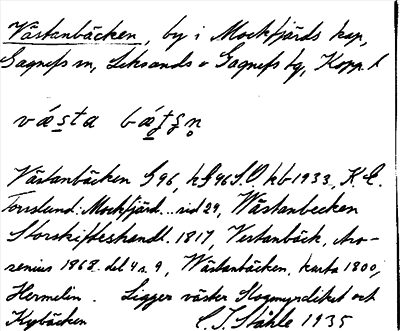 Västanbäcken, by i Mockfjärds kap,
Gagnefs sn, Leksands o Gagnefs tg, Kopp. l
västa bäʈʂn̥
Västanbäcken G96, hG96S.O. kb 1933, K. E.
Forsslund: Mockfjärd... sid 29, Wästanbecken
Storskifteshandl. 1817, Vestanbäck, Aro-
senius 1868. del 4 s. 9, Wästanbäcken, karta 1800,
Hermelin. Ligger väster Skogmyrdiket och
Kybäcken C. I. Ståhle 1935